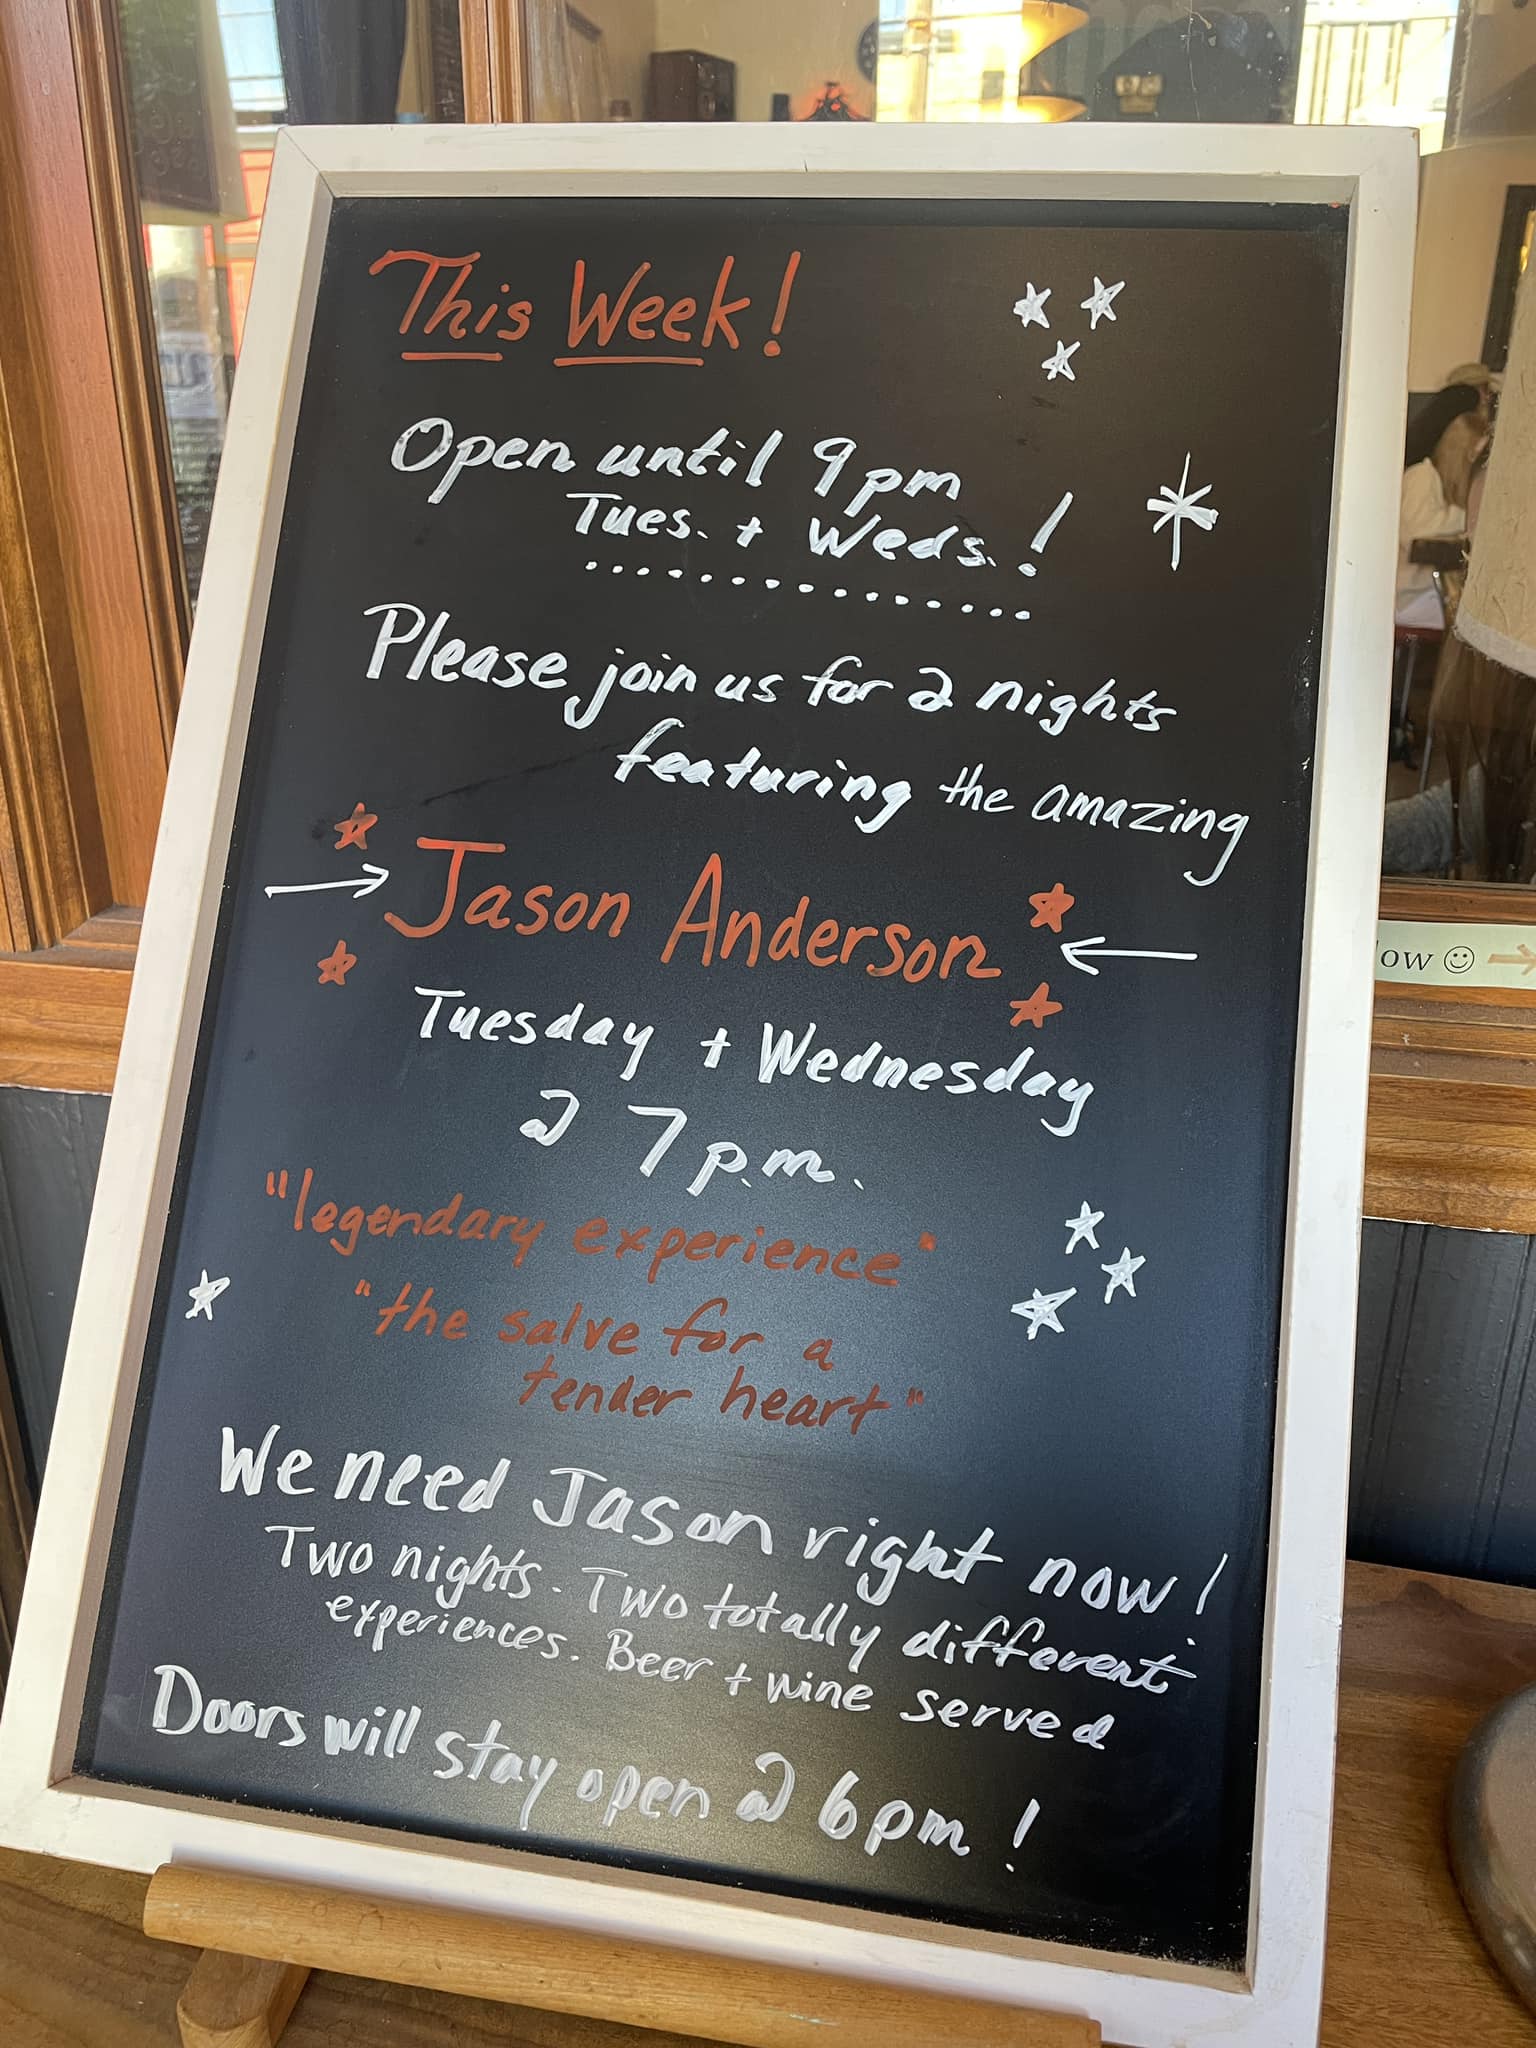 This Week!
Open until 9pm
Tues. + Weds. !
Please join us for 2 nights
featuring the amazing
Jason Anderson
Tuesday + Wednesday
@ 7 p.m.
"legendary experience"
"the salve for a
tender heart"
We need Jason right now!
Two nights. Two totally different
experiences. Beer + wine served
Doors will stay open @ 6pm!
low ☺ →